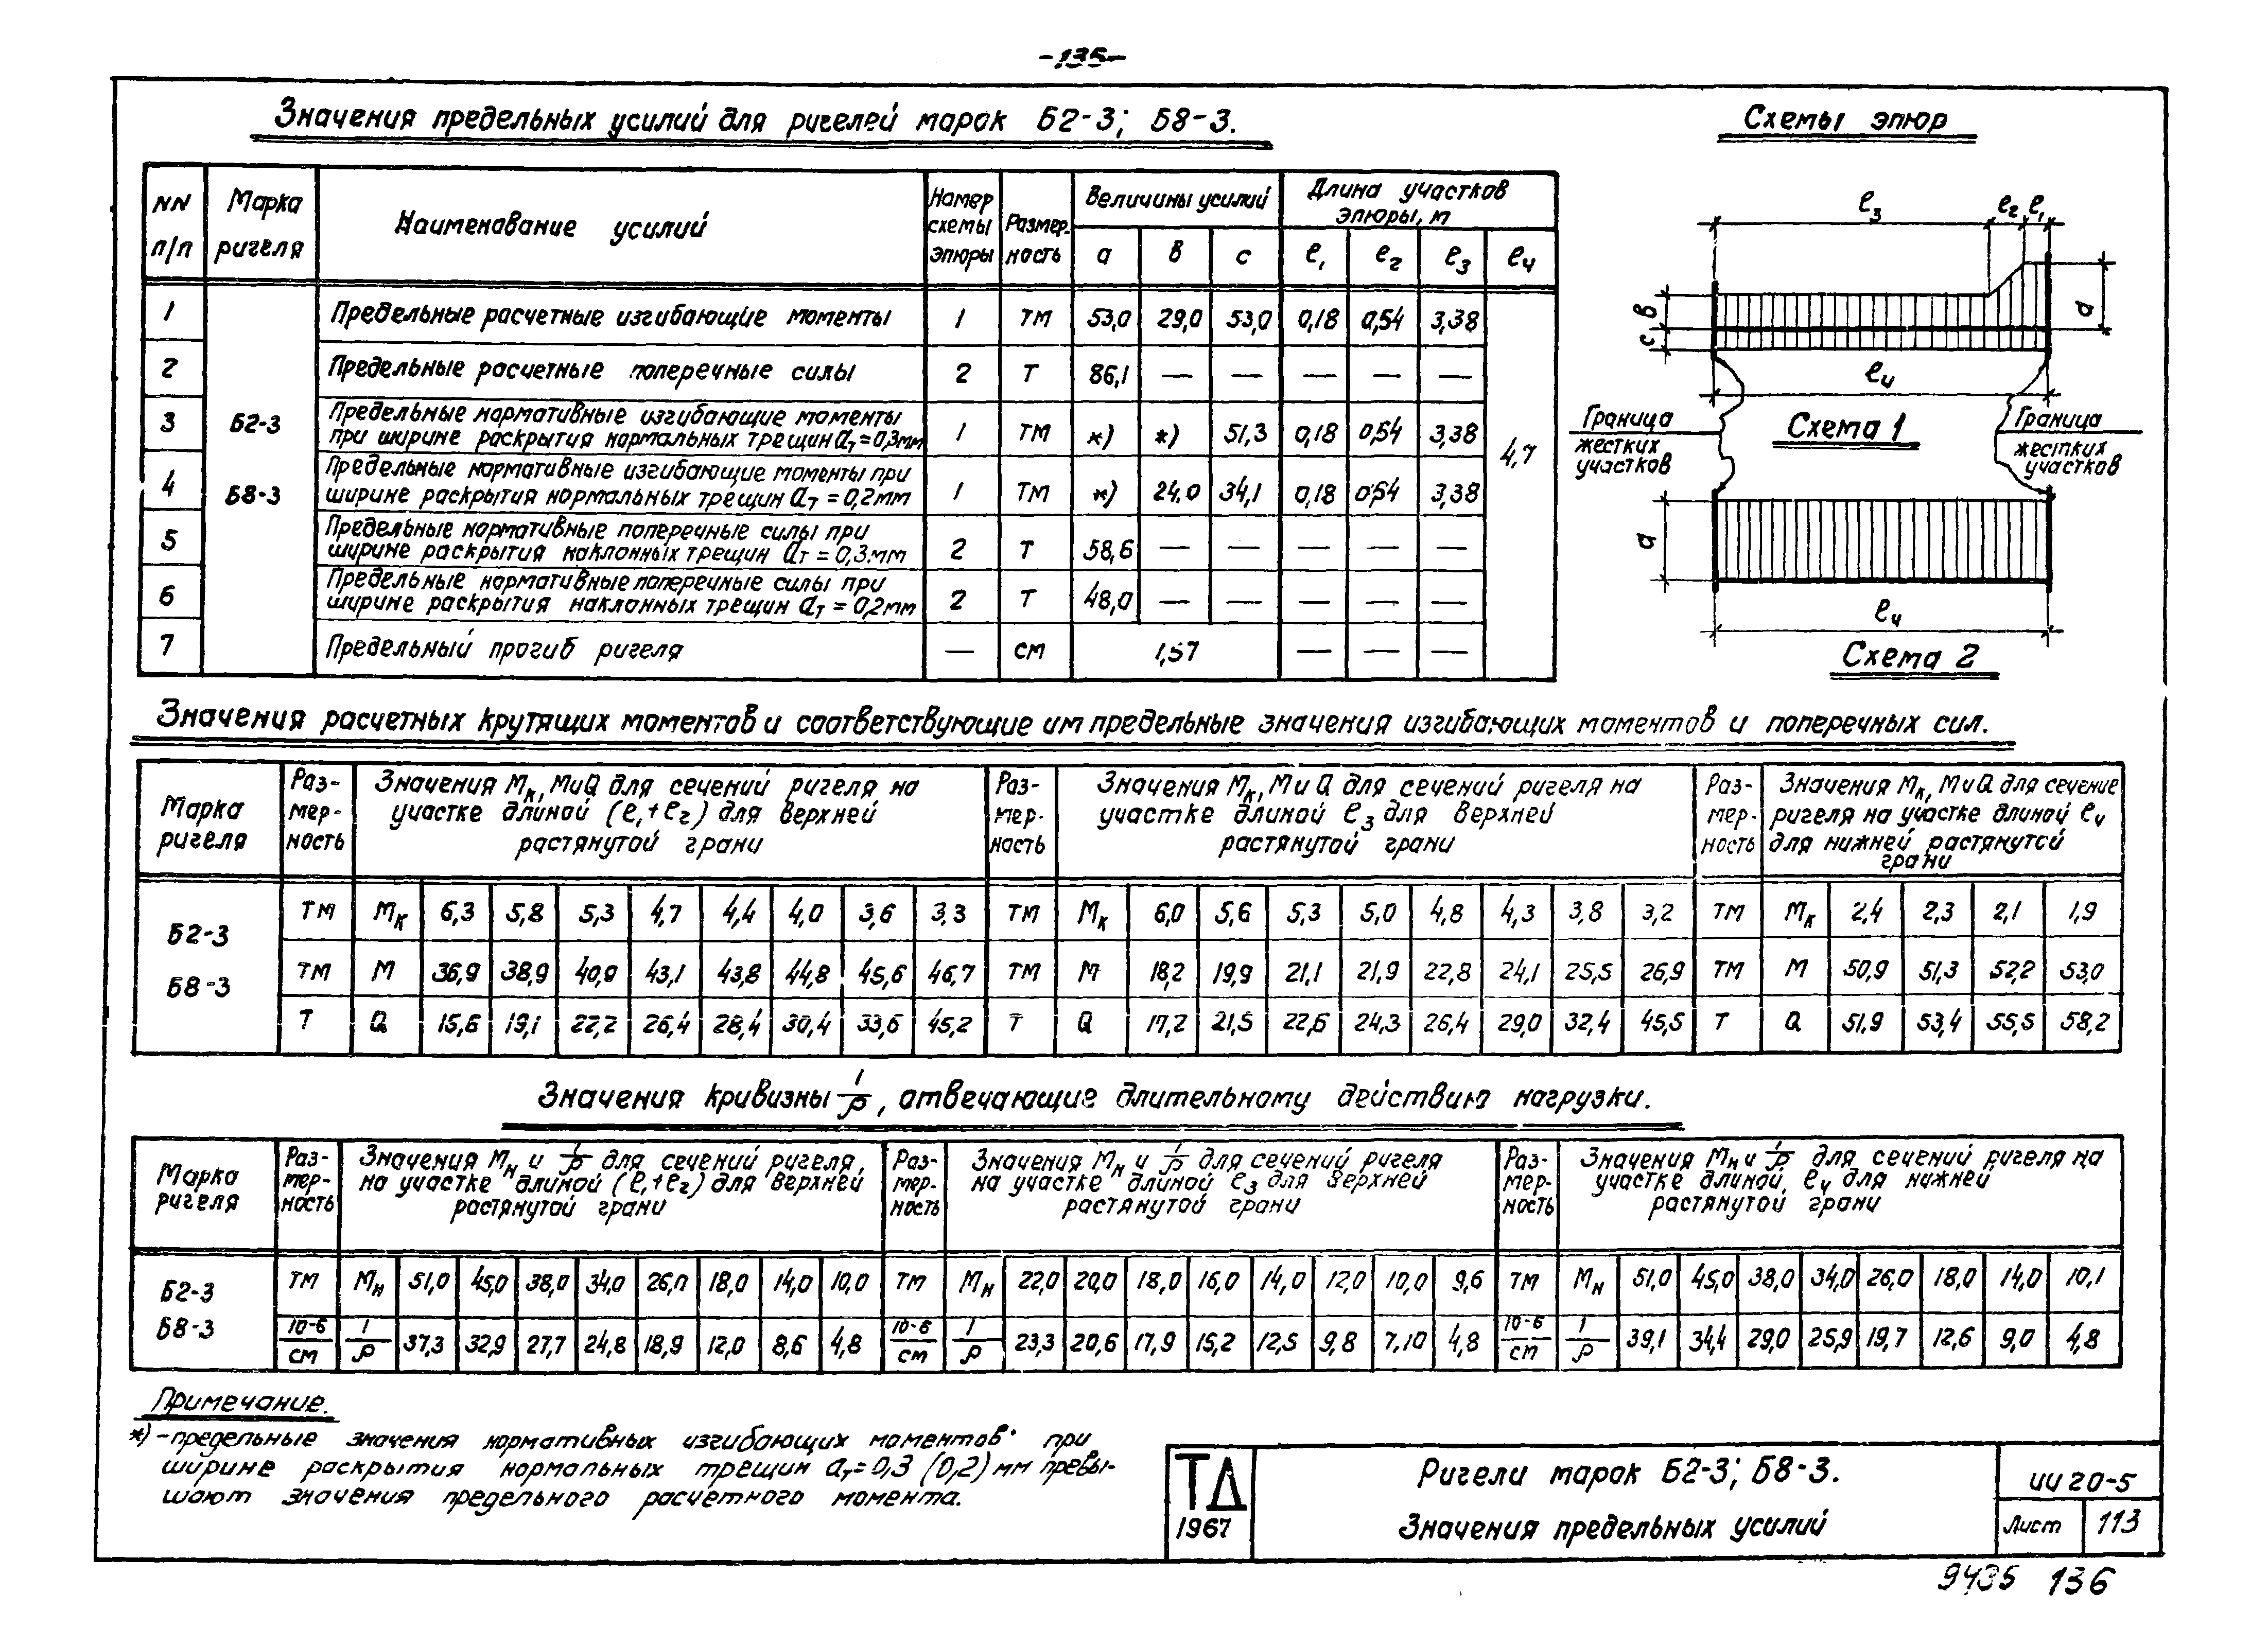 -135-
Значения предельных усилий для ригелей марок Б2-3; Б8-3.
Схемы эпюр
NN п/п | Марка ригеля | Наименование усилий | Номер схемы эпюры | Размерность | Величины усилий | Длина участков эпюры, м
а | в | с | ℓ₁ | ℓ₂ | ℓ₃ | ℓ₄
Б2-3
Б8-3
1 | Предельные расчетные изгибающие моменты | 1 | тм | 53,0 | 29,0 | 53,0 | 0,18 | 0,54 | 3,38
2 | Предельные расчетные поперечные силы | 2 | т | 86,1 | — | — | — | — | —
3 | Предельные нормативные изгибающие моменты
при ширине раскрытия нормальных трещин aт = 0,3мм | 1 | тм | *) | *) | 51,3 | 0,18 | 0,54 | 3,38
4,7
4 | Предельные нормативные изгибающие моменты при
ширине раскрытия нормальных трещин aт = 0,2мм | 1 | тм | *) | 24,0 | 34,1 | 0,18 | 0,54 | 3,38
5 | Предельные нормативные поперечные силы при
ширине раскрытия наклонных трещин aт = 0,3мм | 2 | т | 58,6 | — | — | — | — | —
6 | Предельные нормативные поперечные силы при
ширине раскрытия наклонных трещин aт = 0,2мм | 2 | т | 48,0 | — | — | — | — | —
7 | Предельный прогиб ригеля | — | см | 1,57 | — | — | —
ℓ₃ ℓ₂ ℓ₁
в с а
ℓ₄
Граница
жестких
участков
Схема 1
Граница
жестких
участков
а
ℓ₄
Схема 2
Значения расчетных крутящих моментов и соответствующие им предельные значения изгибающих моментов и поперечных сил.
Марка ригеля | Раз-мер-ность | Значения Mк, M и Q для сечений ригеля на участке длиной (ℓ₁+ℓ₂) для верхней растянутой грани | Раз-мер-ность | Значения Mк, M и Q для сечений ригеля на участке длиной ℓ₃ для верхней растянутой грани | Раз-мер-ность | Значения Mк, M и Q для сечение ригеля на участке длиной ℓ₄ для нижней растянутой грани
Б2-3
Б8-3
тм | Mк | 6,3 | 5,8 | 5,3 | 4,7 | 4,4 | 4,0 | 3,6 | 3,3 | тм | Mк | 6,0 | 5,6 | 5,3 | 5,0 | 4,8 | 4,3 | 3,8 | 3,2 | тм | Mк | 2,4 | 2,3 | 2,1 | 1,9
тм | M | 36,9 | 38,9 | 40,9 | 43,1 | 43,8 | 44,8 | 45,6 | 46,7 | тм | M | 18,2 | 19,9 | 21,1 | 21,9 | 22,8 | 24,1 | 25,5 | 26,9 | тм | M | 50,9 | 51,3 | 52,2 | 53,0
т | Q | 15,6 | 19,1 | 22,2 | 26,4 | 28,4 | 30,4 | 33,6 | 45,2 | т | Q | 17,2 | 21,5 | 22,6 | 24,3 | 26,4 | 29,0 | 32,4 | 45,5 | т | Q | 51,9 | 53,4 | 55,5 | 58,2
Значения кривизны 1/ρ, отвечающие длительному действию нагрузки.
Марка ригеля | Раз-мер-ность | Значения Mн и 1/ρ для сечений ригеля, на участке длиной (ℓ₁+ℓ₂) для верхней растянутой грани | Раз-мер-ность | Значения Mн и 1/ρ для сечений ригеля на участке длиной ℓ₃ для верхней растянутой грани | Раз-мер-ность | Значения Mн и 1/ρ для сечений ригеля на участке длиной ℓ₄ для нижней растянутой грани
Б2-3
Б8-3
тм | Mн | 51,0 | 45,0 | 38,0 | 34,0 | 26,0 | 18,0 | 14,0 | 10,0 | тм | Mн | 22,0 | 20,0 | 18,0 | 16,0 | 14,0 | 12,0 | 10,0 | 9,6 | тм | Mн | 51,0 | 45,0 | 38,0 | 34,0 | 26,0 | 18,0 | 14,0 | 10,1
10-6/см | 1/ρ | 37,3 | 32,9 | 27,7 | 24,8 | 18,9 | 12,0 | 8,6 | 4,8 | 10-6/см | 1/ρ | 23,3 | 20,6 | 17,9 | 15,2 | 12,5 | 9,8 | 7,10 | 4,8 | 10-6/см | 1/ρ | 39,1 | 34,4 | 29,0 | 25,9 | 19,7 | 12,6 | 9,0 | 4,8
Примечание.
*) - предельные значения нормативных изгибающих моментов при
ширине раскрытия нормальных трещин aт=0,3 (0,2) мм превы-
шают значения предельного расчётного момента.
ТД
1967
Ригели марок Б2-3; Б8-3.
Значения предельных усилий
ИИ 20-5
Лист 113
9435 136